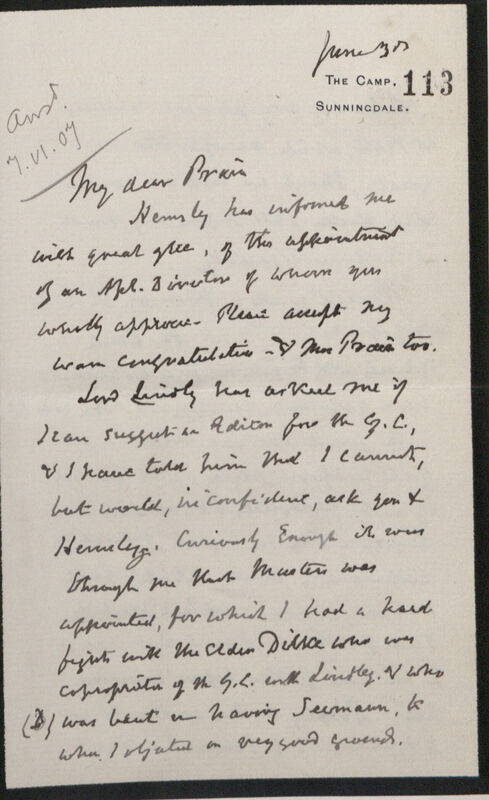 June 3d
THE CAMP, 113
SUNNINGDALE.
Ansd.
7.VI.07
My dear Prain
Hemsley has informed me
with great glee, of the appointment
of an Asst. Director of whom you
wholly approve. Please accept my
warm congratulations & Mrs Prain too.
Lord Lindley has asked me if
I can suggest an Editor for the G.C.,
& I have told him that I cannot,
but would, in confidence, ask you &
Hemsley. Curiously Enough it was
through me that Masters was
appointed, for which I had a hard
fight with the elder Dilke who was
coproprietor of the G.C. with Lindley, & who
was bent on having Seemann, to
whom I objected on very good grounds.